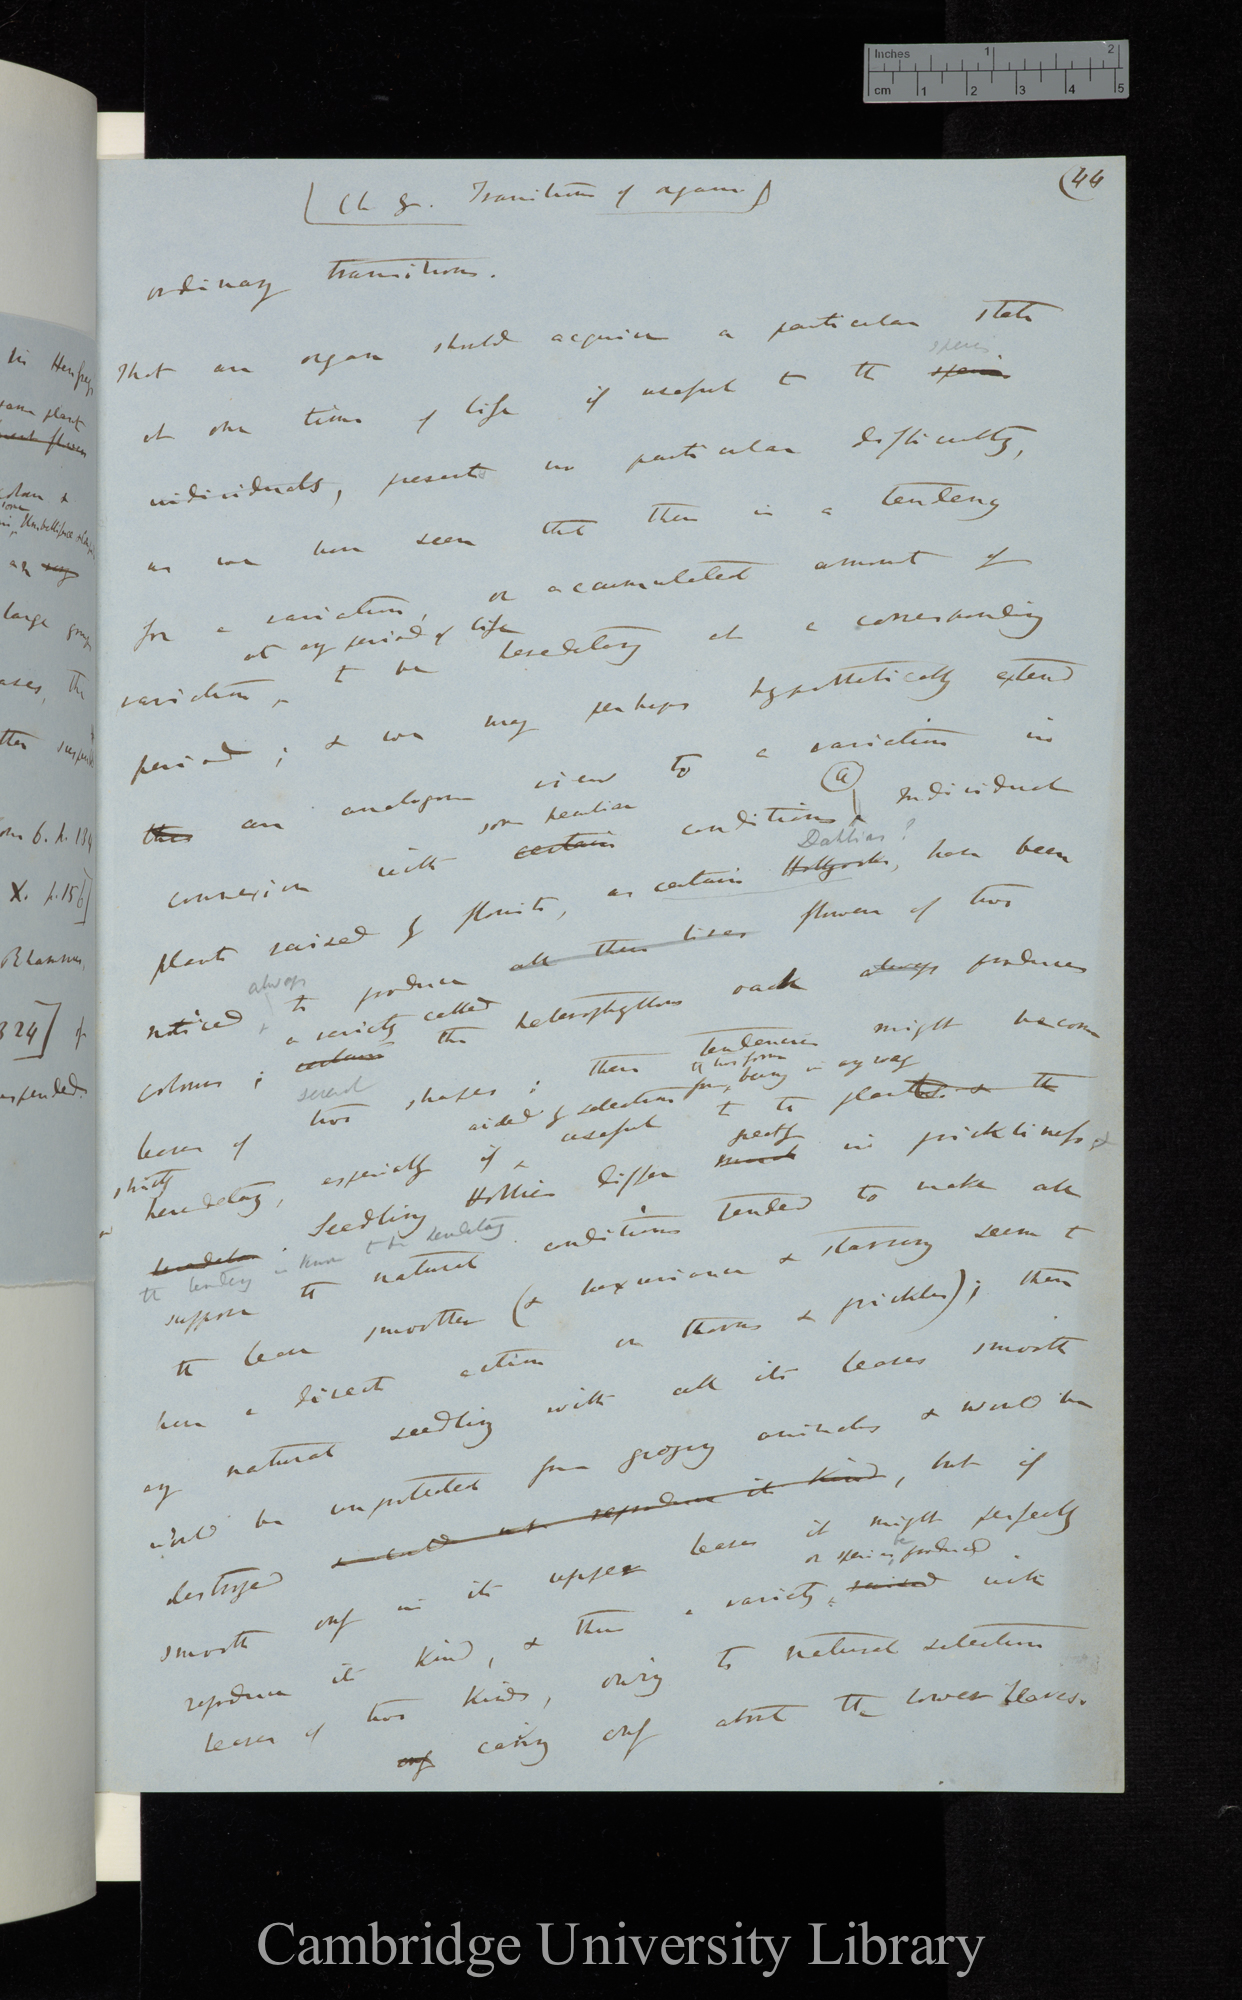 Inches 1 2
cm 1 2 3 4 5
(44
(Ch 8. Transitions of organs)
ordinary transitions.
That an organ should acquire a particular state
species
at one time of life if useful to the species
individuals, presents no particular difficulty,
as we have seen that there is a tendency
for a variation, or accumulated amount of
at any period of life
variation, to be hereditary at a corresponding
period; & we may perhaps hypothetically extend
this an analogous view to a variation in
(a)
some peculiar
connexion with certain conditions. Individual
Dahlias?
plants raised by florists, as certain Hollyocks, have been
noticed to produce all their lives flowers of two
always
a variety called
colours; certain the heterophyllous oak always produces
several
leaves of two shapes: these tendencies might become
aided by selection from being in any way
strictly
hereditary, especially if useful to the plants & the
greatly
hereditary. Seedling Hollies differ much in prickliness, &
the tendency is known to be hereditary
suppose the natural conditions tended to make all
the leaves smoother (& luxuriance & starving seem to
have a direct action on thorns & prickles); then
any natural seedling with all its leaves smooth
would be unprotected from grazing animals & would be
destroyed & would not reproduce its kind, but if
smooth only in its upper leaves it might perfectly
or species be produced
reproduce its kind, & thus a variety, raised with
leaves of two kinds, owing to natural selection
only caring only about the lower leaves.
in Henfrey
same plant
colour &
some
in Umbelliferae
as
large
ases, the
p. 134
X. p. 156]
Rhamnus,
324]
suspended.
Cambridge University Library